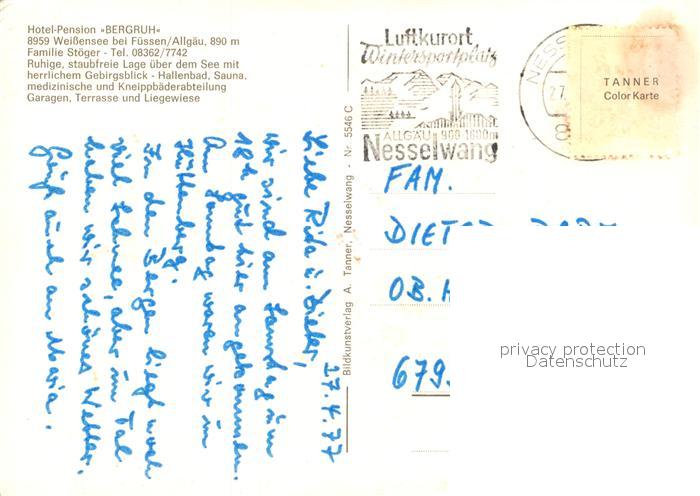 Hotel-Pension »BERGRUH«
8959 Weißensee bei Füssen/Allgäu, 890 m
Familie Stöger - Tel. 08362/7742
Ruhige, staubfreie Lage über dem See mit
herrlichem Gebirgsblick - Hallenbad, Sauna,
medizinische und Kneippbäderabteilung
Garagen, Terrasse und Liegewiese
17.4.77
Liebe Rita u. Dieter,
wir sind am Samstag um
18h gut hier angekommen.
Am Sonntag waren wir in
Hüttenberg.
In den Bergen liegt noch
viel Schnee, aber im Tal
haben wir schönes Wetter.
Gruß auch an Maria.
Bildkunstverlag A. Tanner, Nesselwang - Nr. 5546 C
Luftkurort
Wintersportplatz
ALLGÄU 900-1600m
Nesselwang
NESS
27.
8
TANNER
Color Karte
FAM.
OB.
679.
privacy protection
Datenschutz